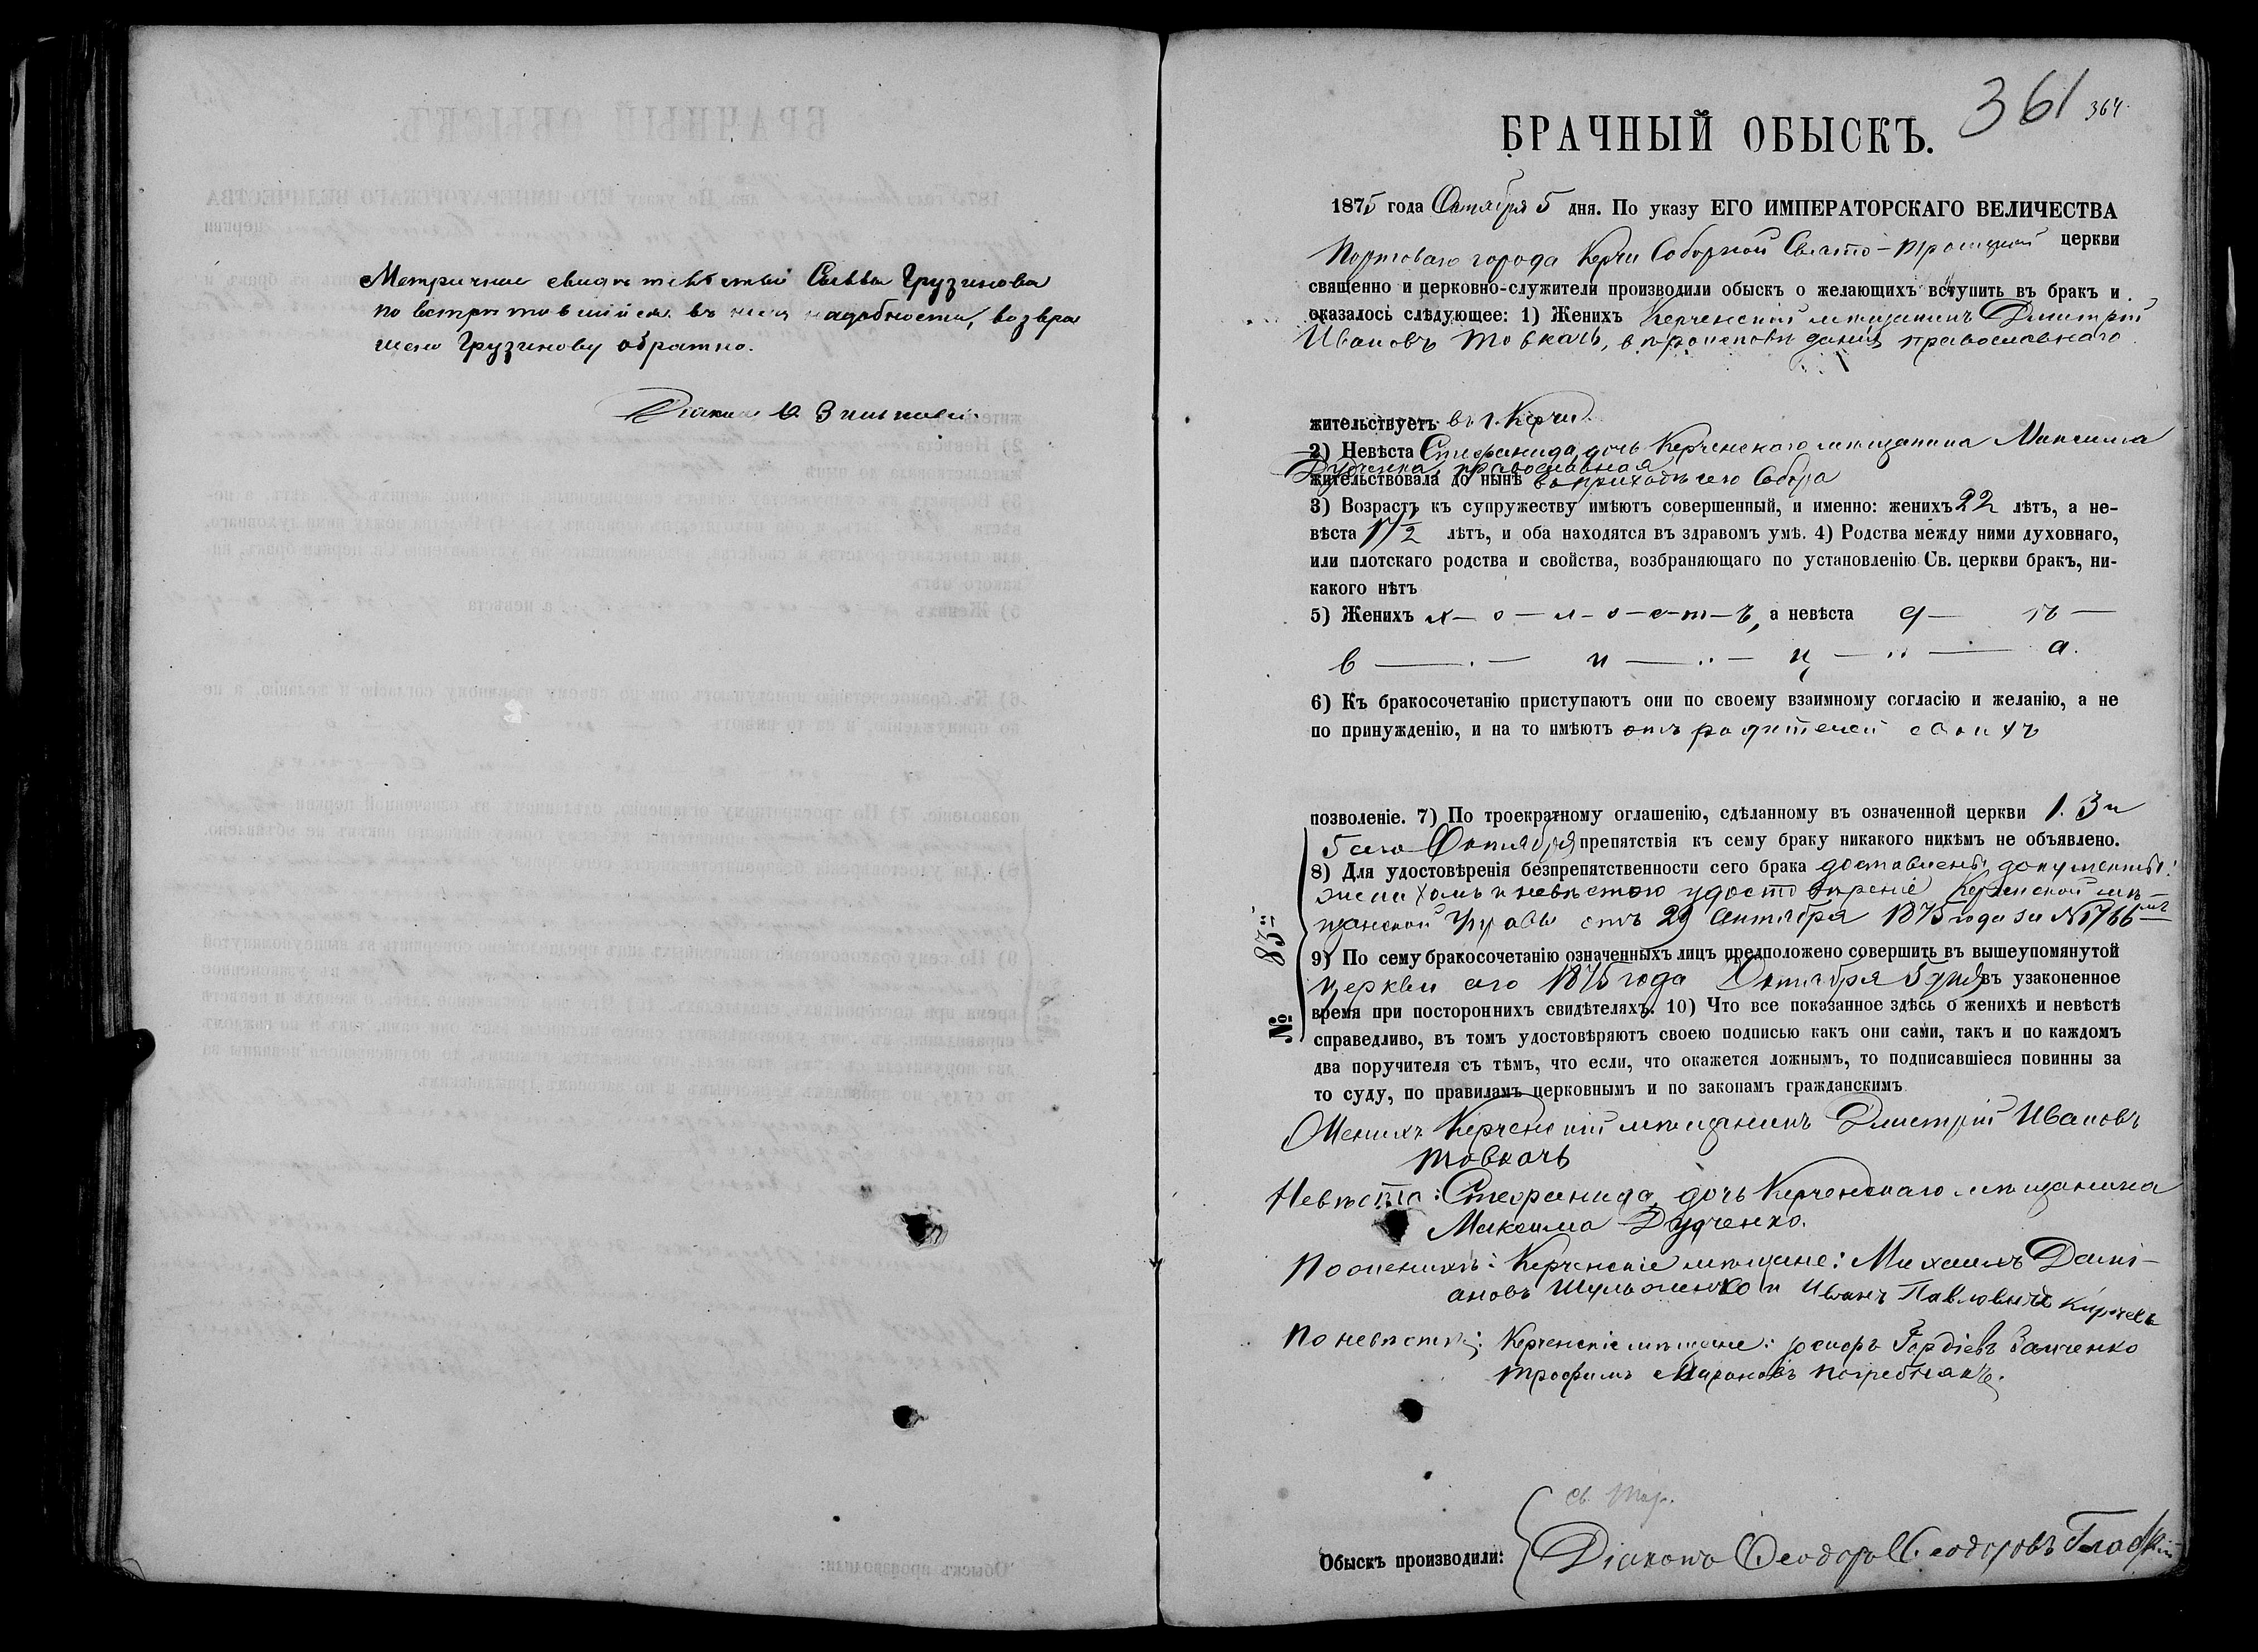 Метричное свидѣтельство Саввы Грузинова
по встрѣтившейся въ немъ надобности, возвра
щено Грузинову обратно.
Діаконъ
361 364
БРАЧНЫЙ ОБЫСКЪ.
1875 года Октября 5 дня. По указу ЕГО ИМПЕРАТОРСКАГО ВЕЛИЧЕСТВА
Портоваго города Керчи Соборной Свято-Троицкой церкви
священно и церковно-служители производили обыскъ о желающихъ вступить въ бракъ и
оказалось слѣдующее: 1) Женихъ Керченскій мѣщанинъ Дмитрій
Ивановъ Товкачь, вѣроисповѣданія православнаго
жительствуетъ въ г. Керчи.
2) Невѣста Стефанида, дочь Керченскаго мѣщанина Максима
Дудченка, православная
жительствовала до нынѣ въ приходѣ сего Собора
3) Возрастъ къ супружеству имѣютъ совершенный, и именно: женихъ 22 лѣтъ, а не-
вѣста 17 1/2 лѣтъ, и оба находятся въ здравомъ умѣ. 4) Родства между ними духовнаго,
или плотскаго родства и свойства, возбраняющаго по установленію Св. церкви бракъ, ни-
какого нѣтъ
5) Женихъ х– о – л – о – с – т – ъ, а невѣста д – ѣ –
в – и – ц – а.
6) Къ бракосочетанію приступаютъ они по своему взаимному согласію и желанію, а не
по принужденію, и на то имѣютъ отъ родителей своихъ
позволеніе. 7) По троекратному оглашенію, сдѣланному въ означенной церкви 1. 3 и
5 сего Октября препятствія къ сему браку никакого никѣмъ не объявлено.
8) Для удостовѣренія безпрепятственности сего брака доставлены документы:
женихомъ и невѣстою удостовѣреніе Керченской мѣ-
щанской Управы отъ 29 Сентября 1875 года за № 1766мъ
9) По сему бракосочетанію означенныхъ лицъ предположено совершить въ вышеупомянутой
церкви сего 1875 года Октября 5 дня въ узаконенное
время при постороннихъ свидѣтеляхъ. 10) Что все показанное здѣсь о женихѣ и невѣстѣ
справедливо, въ томъ удостовѣряютъ своею подписью какъ они сами, такъ и по каждомъ
два поручителя съ тѣмъ, что если, что окажется ложнымъ, то подписавшіеся повинны за
то суду, по правиламъ церковнымъ и по законамъ гражданскимъ
№ 83
Женихъ Керченскій мѣщанинъ Дмитрій Ивановъ
Товкачь
Невѣста: Стефанида, дочь Керченскаго мѣщанина
Максима Дудченко.
По женихѣ: Керченскіе мѣщане: Михаилъ Дами-
ановъ Шульженко и Иванъ Павловичъ
По невѣстѣ: Керченскіе мѣщане: Іосифъ Гордіевъ Заиченко
Трофимъ Погребнякъ.
Обыскъ производили:
Діаконъ Ѳеодоръ Ѳеодоровъ